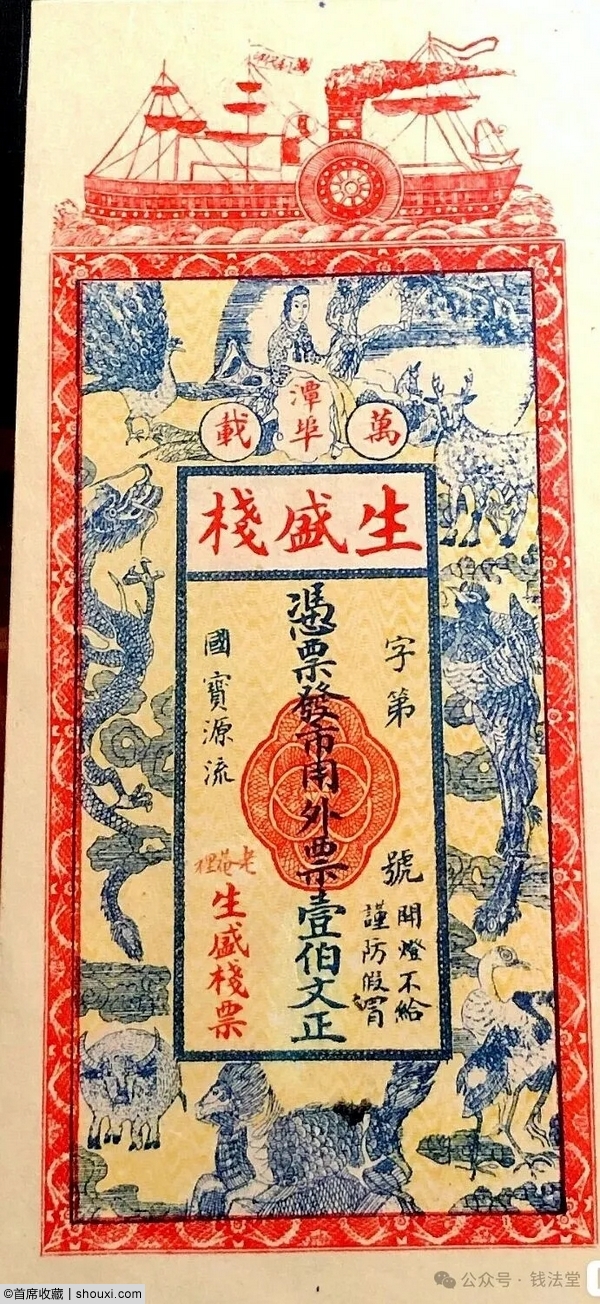 萬
潭埠
載
生盛棧
字第 號
開燈不給
謹防假冒
憑票發市用外票壹伯文正
國寶源流
生盛棧票
公众号 · 钱法堂
©首席收藏 | shouxi.com